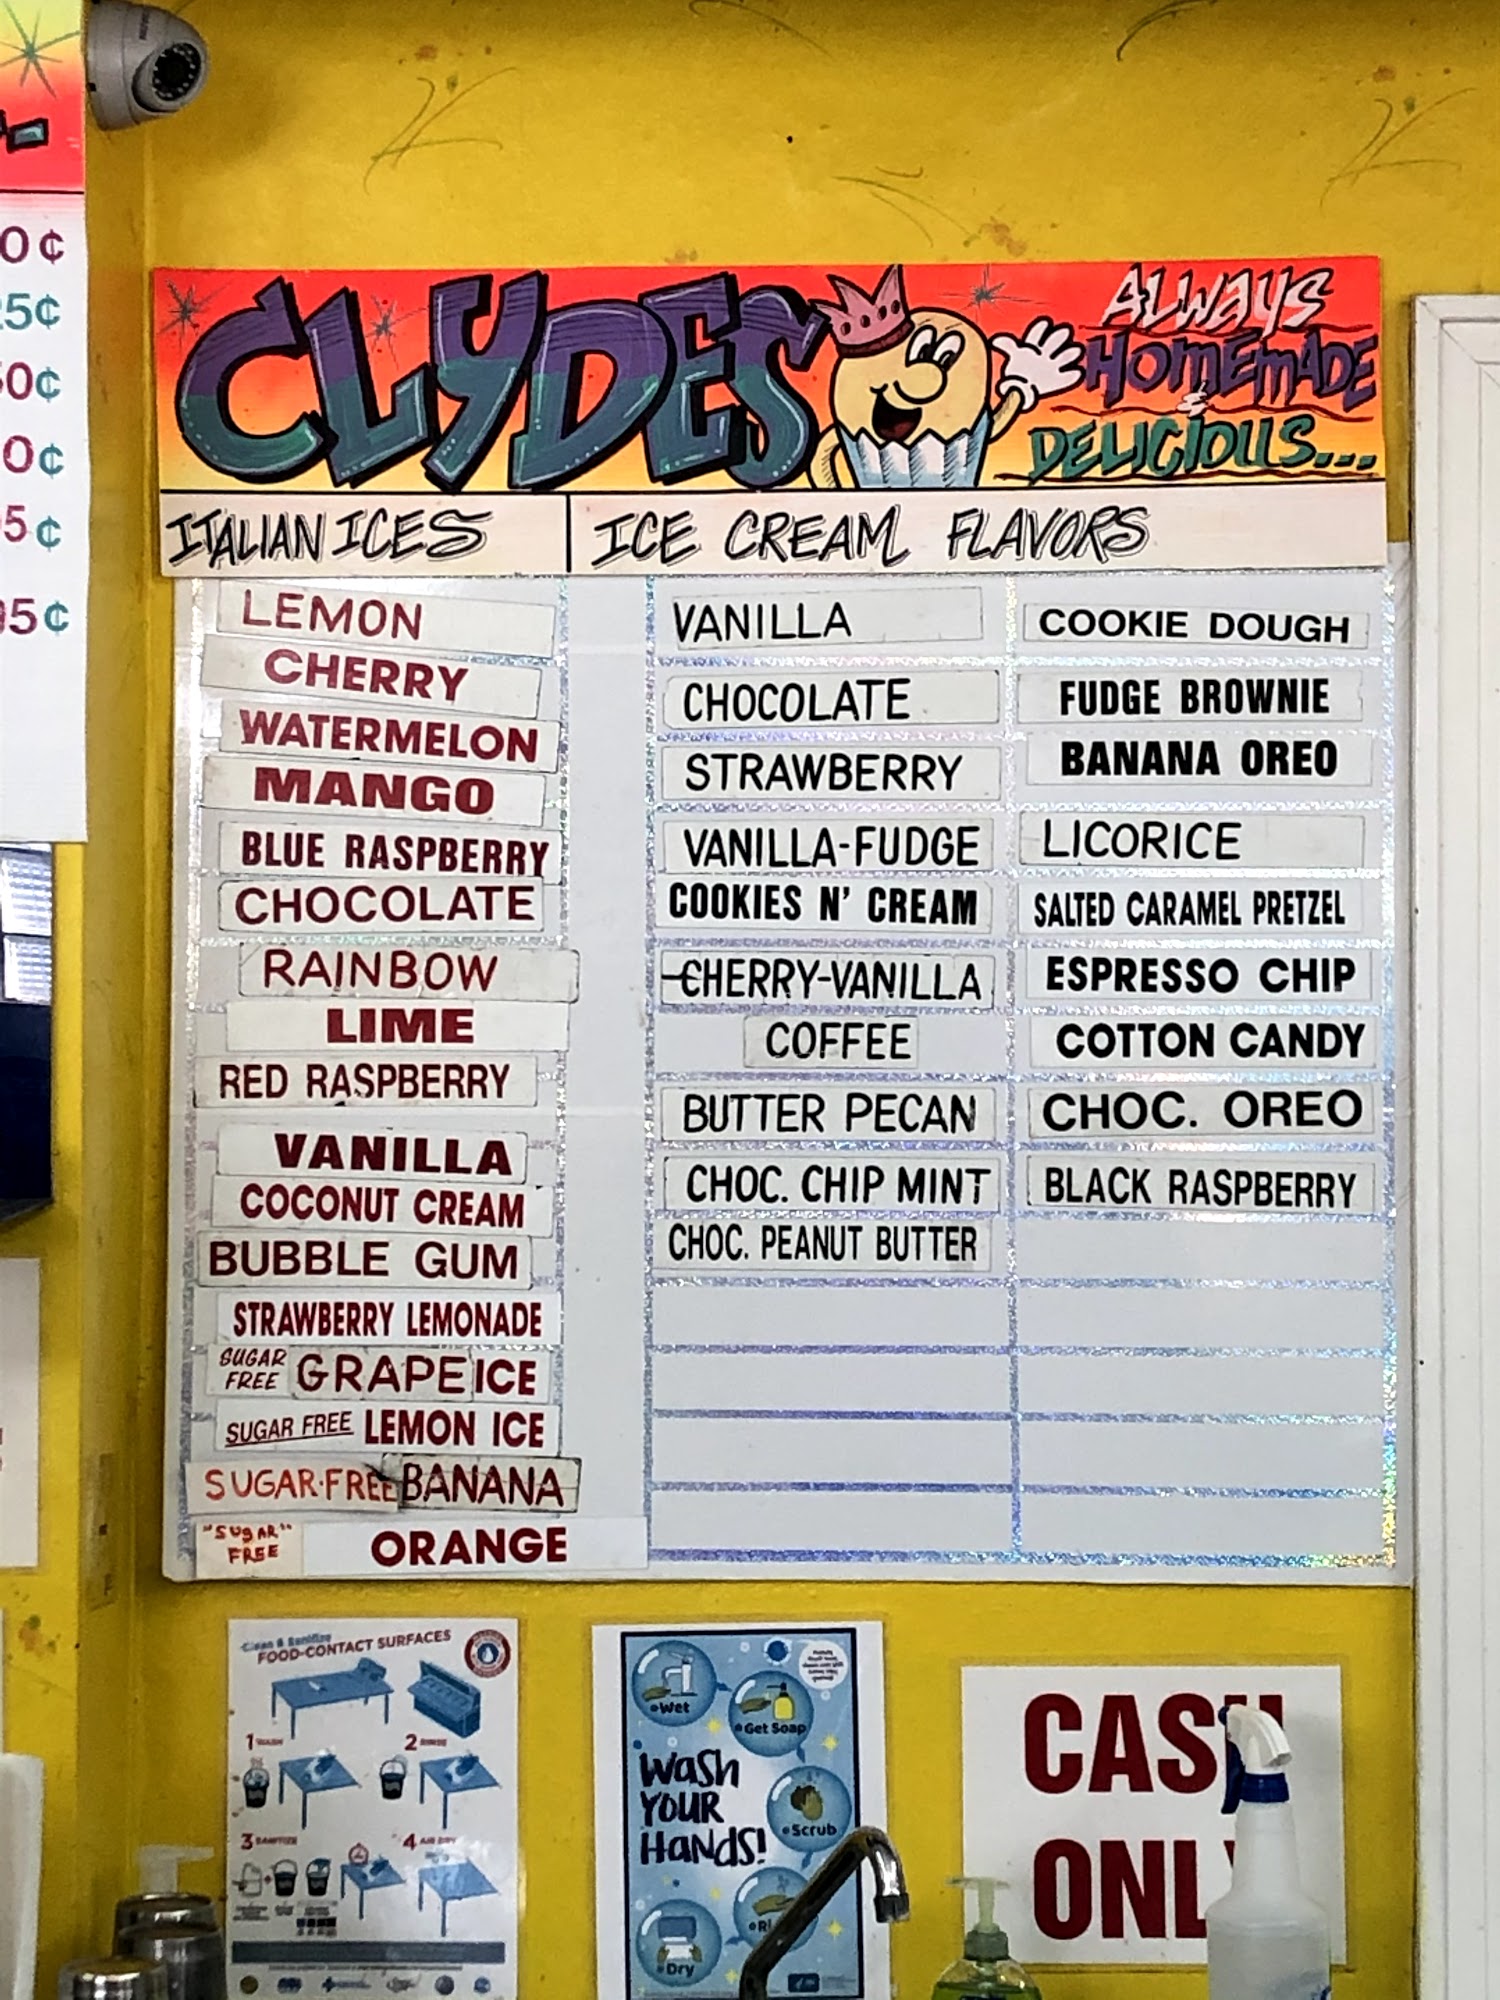 0¢
25¢
50¢
0¢
5¢
95¢
CLYDES
ALWAYS
HOMEMADE
&
DELICIOUS...
ITALIAN ICES
ICE CREAM FLAVORS
LEMON
CHERRY
WATERMELON
MANGO
BLUE RASPBERRY
CHOCOLATE
RAINBOW
LIME
RED RASPBERRY
VANILLA
COCONUT CREAM
BUBBLE GUM
STRAWBERRY LEMONADE
SUGAR FREE GRAPE ICE
SUGAR FREE LEMON ICE
SUGAR-FREE BANANA
"SUgAR" FREE ORANGE
VANILLA
CHOCOLATE
STRAWBERRY
VANILLA-FUDGE
COOKIES N' CREAM
CHERRY-VANILLA
COFFEE
BUTTER PECAN
CHOC. CHIP MINT
CHOC. PEANUT BUTTER
COOKIE DOUGH
FUDGE BROWNIE
BANANA OREO
LICORICE
SALTED CARAMEL PRETZEL
ESPRESSO CHIP
COTTON CANDY
CHOC. OREO
BLACK RASPBERRY
Clean & Sanitize
FOOD-CONTACT SURFACES
1 WASH
2 RINSE
3 SANITIZE
4 AIR DRY
Wet
Get Soap
Wash
YOUR
Hands!
Scrub
Dry
CASH
ONLY